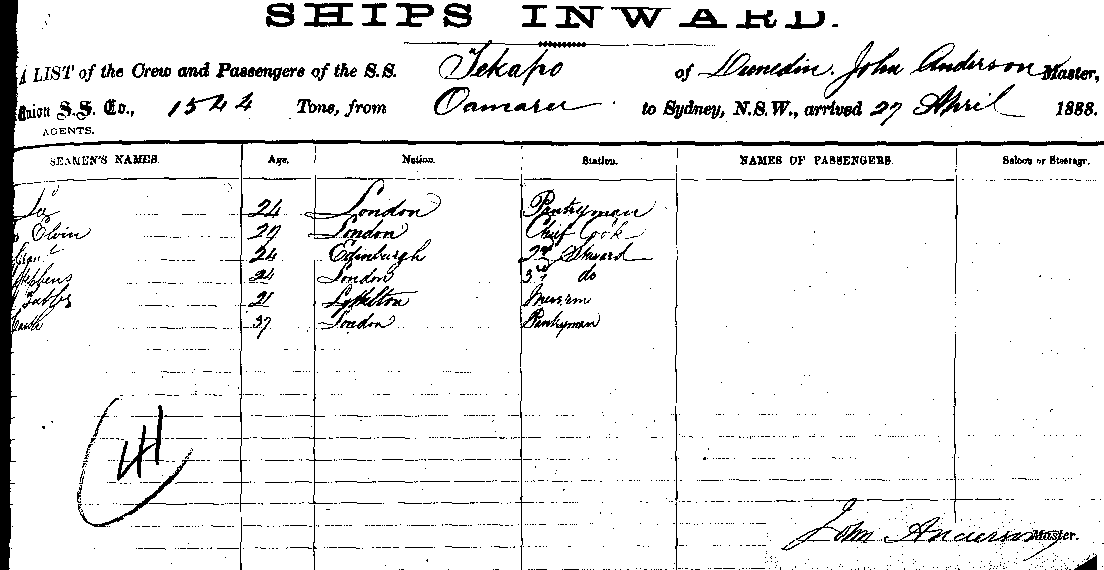 SHIPS INWARD.
A LIST of the Crew and Passengers of the S.S. Tekapo of Dunedin. John Anderson Master,
Union S.S. Co., 1544 Tons, from Oamaru to Sydney, N.S.W., arrived 27 April 1888.
AGENTS.
SEAMEN'S NAMES. Age. Nation. Station. NAMES OF PASSENGERS. Saloon or Steerage.
24 London Pantryman
Elvin 27 London Chief Cook
24 Edinburgh 2nd Steward
Stephens 24 London 3rd do
21 Lyttelton
37 London Pantryman
John Anderson Master.